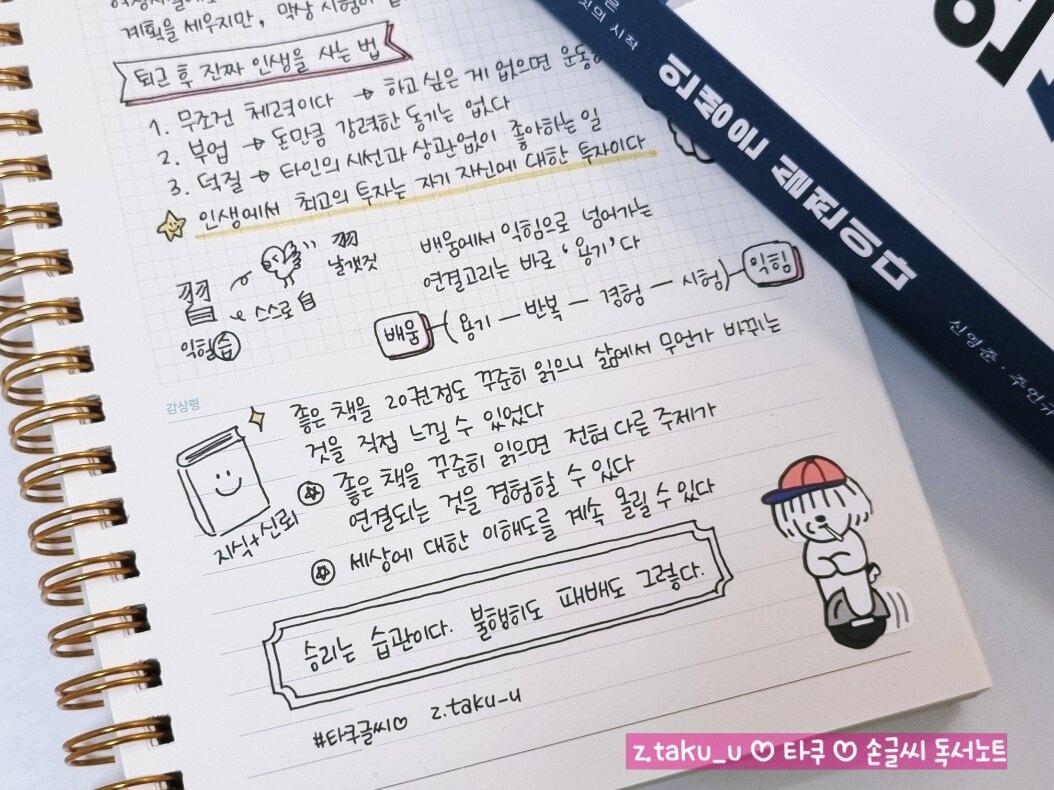 계획을 세우지만, 막상 시험이
퇴근 후 진짜 인생을 사는 법
1. 무조건 체력이다 → 하고 싶은 게 없으면 운동
2. 부업 → 돈만큼 강력한 동기는 없다
3. 덕질 → 타인의 시선과 상관없이 좋아하는 일
인생에서 최고의 투자는 자기 자신에 대한 투자이다
羽
날갯짓
羽
스스로 自
익힐 습
배움에서 익힘으로 넘어가는
연결고리는 바로 '용기'다
배움 (용기 - 반복 - 경험 - 시험) 익힘
감상평
좋은 책을 20권정도 꾸준히 읽으니 삶에서 무언가 바뀌는
것을 직접 느낄 수 있었다
좋은 책을 꾸준히 읽으면 전혀 다른 주제가
연결되는 것을 경험할 수 있다
지식+신뢰
세상에 대한 이해도를 계속 올릴 수 있다
승리는 습관이다. 불행히도 패배도 그렇다.
#타쿠글씨♡ z.taku_u
의 시작
인생은 실전이다
신영준 · 주언규
z.taku_u ♡ 타쿠 ♡ 손글씨 독서노트